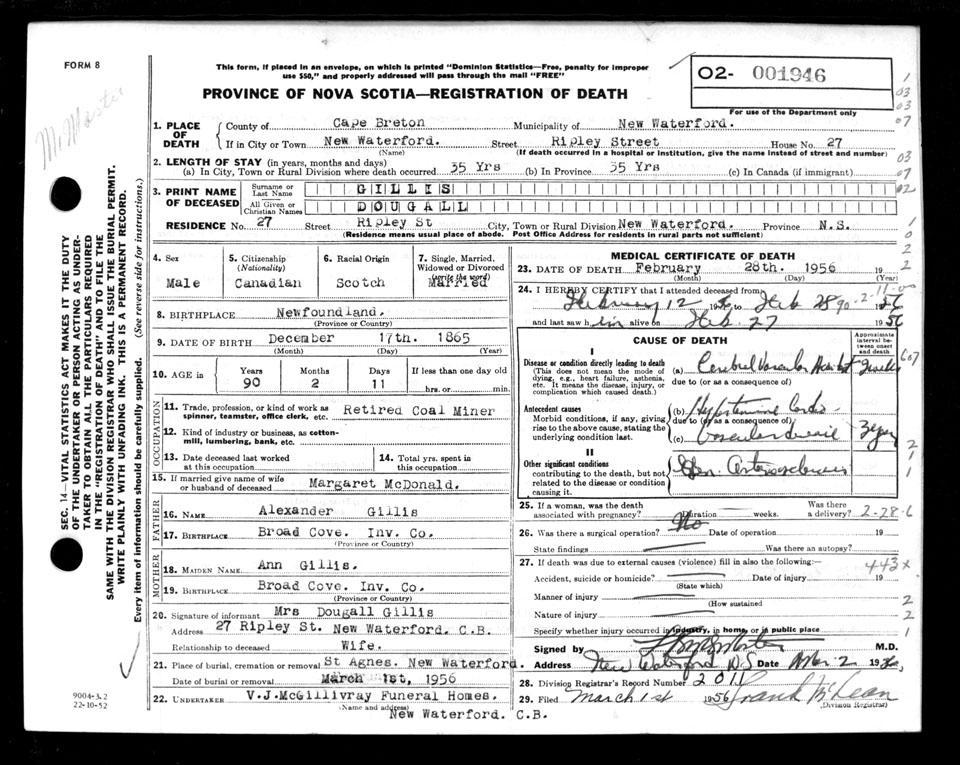 FORM 8
This form, if placed in an envelope, on which is printed "Dominion Statistics—Free, penalty for improper
use $50," and properly addressed will pass through the mail "FREE"
PROVINCE OF NOVA SCOTIA—REGISTRATION OF DEATH
O2- 001946
For use of the Department only
1. PLACE OF DEATH
County of Cape Breton Municipality of New Waterford.
If in City or Town New Waterford. Street Ripley Street House No. 27
(Name) (If death occurred in a hospital or institution, give the name instead of street and number)
2. LENGTH OF STAY (in years, months and days)
(a) In City, Town or Rural Division where death occurred 35 Yrs (b) In Province 35 Yrs (c) In Canada (if immigrant)
3. PRINT NAME OF DECEASED
Surname or Last Name GILLIS
All Given or Christian Names DOUGALL
RESIDENCE No. 27 Street Ripley St City, Town or Rural Division New Waterford. Province N.S.
(Residence means usual place of abode. Post Office Address for residents in rural parts not sufficient)
4. Sex
Male
5. Citizenship (Nationality)
Canadian
6. Racial Origin
Scotch
7. Single, Married, Widowed or Divorced (write the word)
Married
8. BIRTHPLACE Newfoundland.
(Province or Country)
9. DATE OF BIRTH December 17th. 1865
(Month) (Day) (Year)
10. AGE IN
Years Months Days If less than one day old
90 2 11 hrs. or min.
OCCUPATION
11. Trade, profession, or kind of work as spinner, teamster, office clerk, etc. Retired Coal Miner
12. Kind of industry or business, as cotton-mill, lumbering, bank, etc.
13. Date deceased last worked at this occupation
14. Total yrs. spent in this occupation
15. If married give name of wife or husband of deceased Margaret McDonald.
FATHER
16. NAME Alexander Gillis
17. BIRTHPLACE Broad Cove. Inv. Co.
(Province or Country)
MOTHER
18. MAIDEN NAME Ann Gillis.
19. BIRTHPLACE Broad Cove. Inv. Co.
(Province or Country)
20. Signature of informant Mrs Dougall Gillis
Address 27 Ripley St. New Waterford. C.B.
Relationship to deceased Wife.
21. Place of burial, cremation or removal St Agnes. New Waterford.
Date of burial or removal March 1st, 1956
22. UNDERTAKER V.J.McGillivray Funeral Homes.
(Name and address)
New Waterford. C.B.
MEDICAL CERTIFICATE OF DEATH
23. DATE OF DEATH February 28th. 1956 19
(Month) (Day) (Year)
24. I HEREBY CERTIFY that I attended deceased from
February 12 1956 to Feb 28 1956
and last saw him alive on Feb. 27 1956
CAUSE OF DEATH
Approximate interval between onset and death
I
Disease or condition directly leading to death
(This does not mean the mode of dying, e.g., heart failure, asthenia, etc. It means the disease, injury, or complication which caused death.)
(a) Cerebral Vascular
due to (or as a consequence of)
Antecedent causes
Morbid conditions, if any, giving rise to the above cause, stating the underlying condition last.
(b) Hypertensive Cardio
due to (or as a consequence of)
(c) Vascular disease
II
Other significant conditions
contributing to the death, but not related to the disease or condition causing it.
Gen. Arteriosclerosis
25. If a woman, was the death associated with pregnancy? Duration weeks. Was there a delivery?
2-28-6
26. Was there surgical operation? No Date of operation 19
State findings Was there an autopsy?
27. If death was due to external causes (violence) fill in also the following:
443x
Accident, suicide or homicide? Date of injury 19
(State which)
Manner of injury
(How sustained
Nature of injury
Specify whether injury occurred in industry, in home, or in public place
Signed by M.D.
Address New Waterford NS Date Mar 2 1956
28. Division Registrar's Record Number 2011
29. Filed March 1st 1956 Frank McLean
(Division Registrar)
SEC. 14—VITAL STATISTICS ACT MAKES IT THE DUTY
OF THE UNDERTAKER OR PERSON ACTING AS UNDER-
TAKER TO OBTAIN ALL THE PARTICULARS REQUIRED
IN THE "REGISTRATION OF DEATH" AND TO FILE THE
SAME WITH THE DIVISION REGISTRAR WHO SHALL ISSUE THE BURIAL PERMIT.
WRITE PLAINLY WITH UNFADING INK. THIS IS A PERMANENT RECORD.
Every item of information should be carefully supplied. (See reverse side for instructions.)
9004-3.2
22-10-52